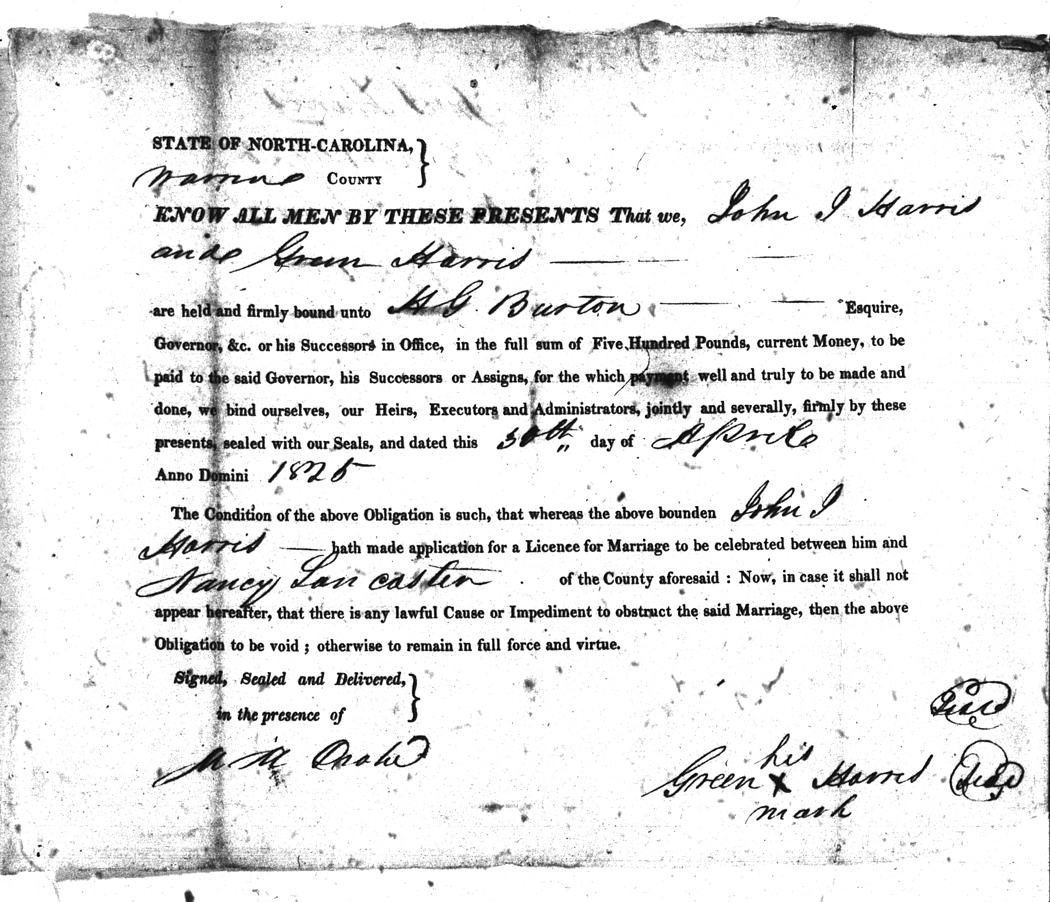 STATE OF NORTH-CAROLINA, }
Warren COUNTY
KNOW ALL MEN BY THESE PRESENTS That we, John J Harris
and Green Harris
are held and firmly bound unto H G. Burton Esquire,
Governor, &c. or his Successors in Office, in the full sum of Five Hundred Pounds, current Money, to be
paid to the said Governor, his Successors or Assigns, for the which payment well and truly to be made and
done, we bind ourselves, our Heirs, Executors and Administrators, jointly and severally, firmly by these
presents, sealed with our Seals, and dated this 30th day of April
Anno Domini 1825
The Condition of the above Obligation is such, that whereas the above bounden John J
Harris hath made application for a Licence for Marriage to be celebrated between him and
Nancy Lancaster of the County aforesaid : Now, in case it shall not
appear hereafter, that there is any lawful Cause or Impediment to obstruct the said Marriage, then the above
Obligation to be void ; otherwise to remain in full force and virtue.
Signed, Sealed and Delivered, }
in the presence of
Seal
M M Drake
his
Green X Harris Seal
mark